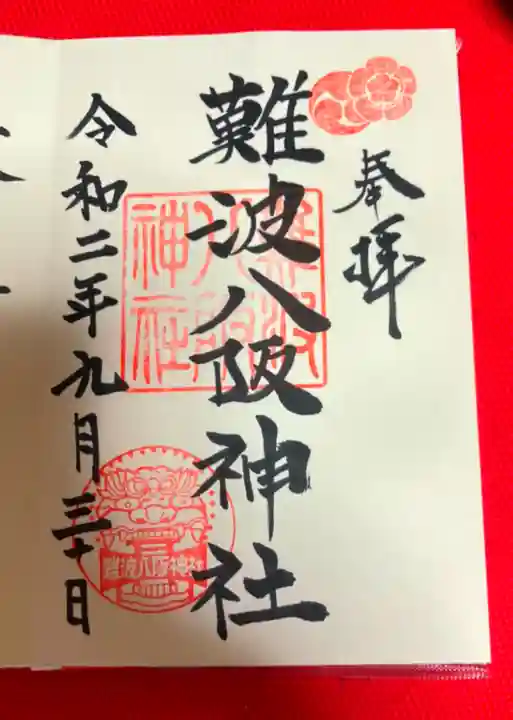 奉拝
難波八阪神社
難波八阪神社
令和二年九月三十日
難波八阪神社